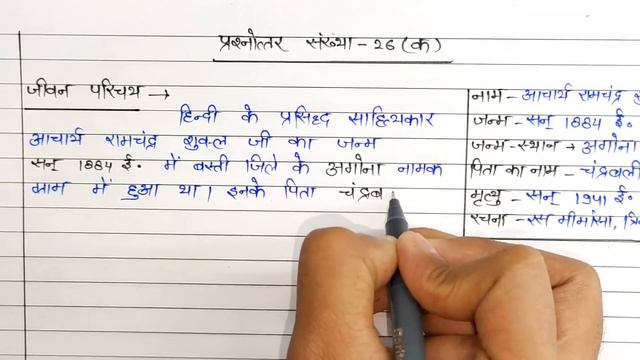 प्रश्नोत्तर संख्या - 26 (क)
जीवन परिचय →
हिन्दी के प्रसिद्ध साहित्यकार
आचार्य रामचंद्र शुक्ल जी का जन्म
सन् 1884 ई० में बस्ती जिले के अगोना नामक
ग्राम में हुआ था। इनके पिता चंद्रब
नाम - आचार्य रामचंद्र
जन्म - सन् 1884 ई०
जन्म-स्थान → अगोना
पिता का नाम - चंद्रबली
मृत्यु - सन् 1941 ई०
रचना - रस मीमांसा, त्रि